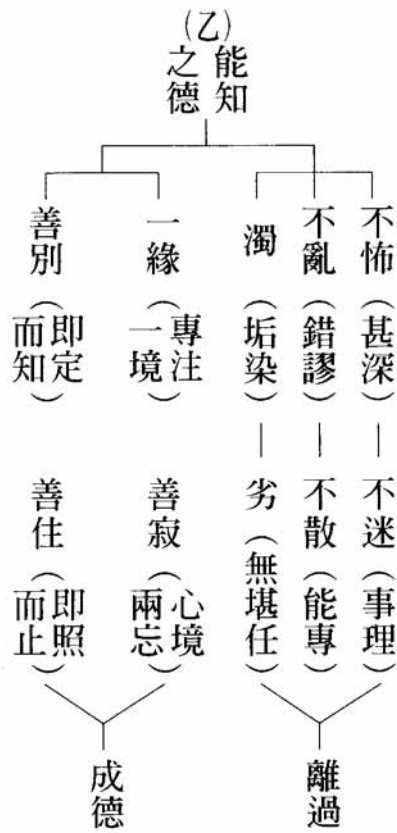 (乙)
能知
之德
不怖(甚深)—不迷(事理)
不亂(錯謬)—不散(能專)
濁(垢染)—劣(無堪任)
離過
一緣(專注一境) 善寂(心境兩忘)
善別(即定而知) 善住(即照而止)
成德